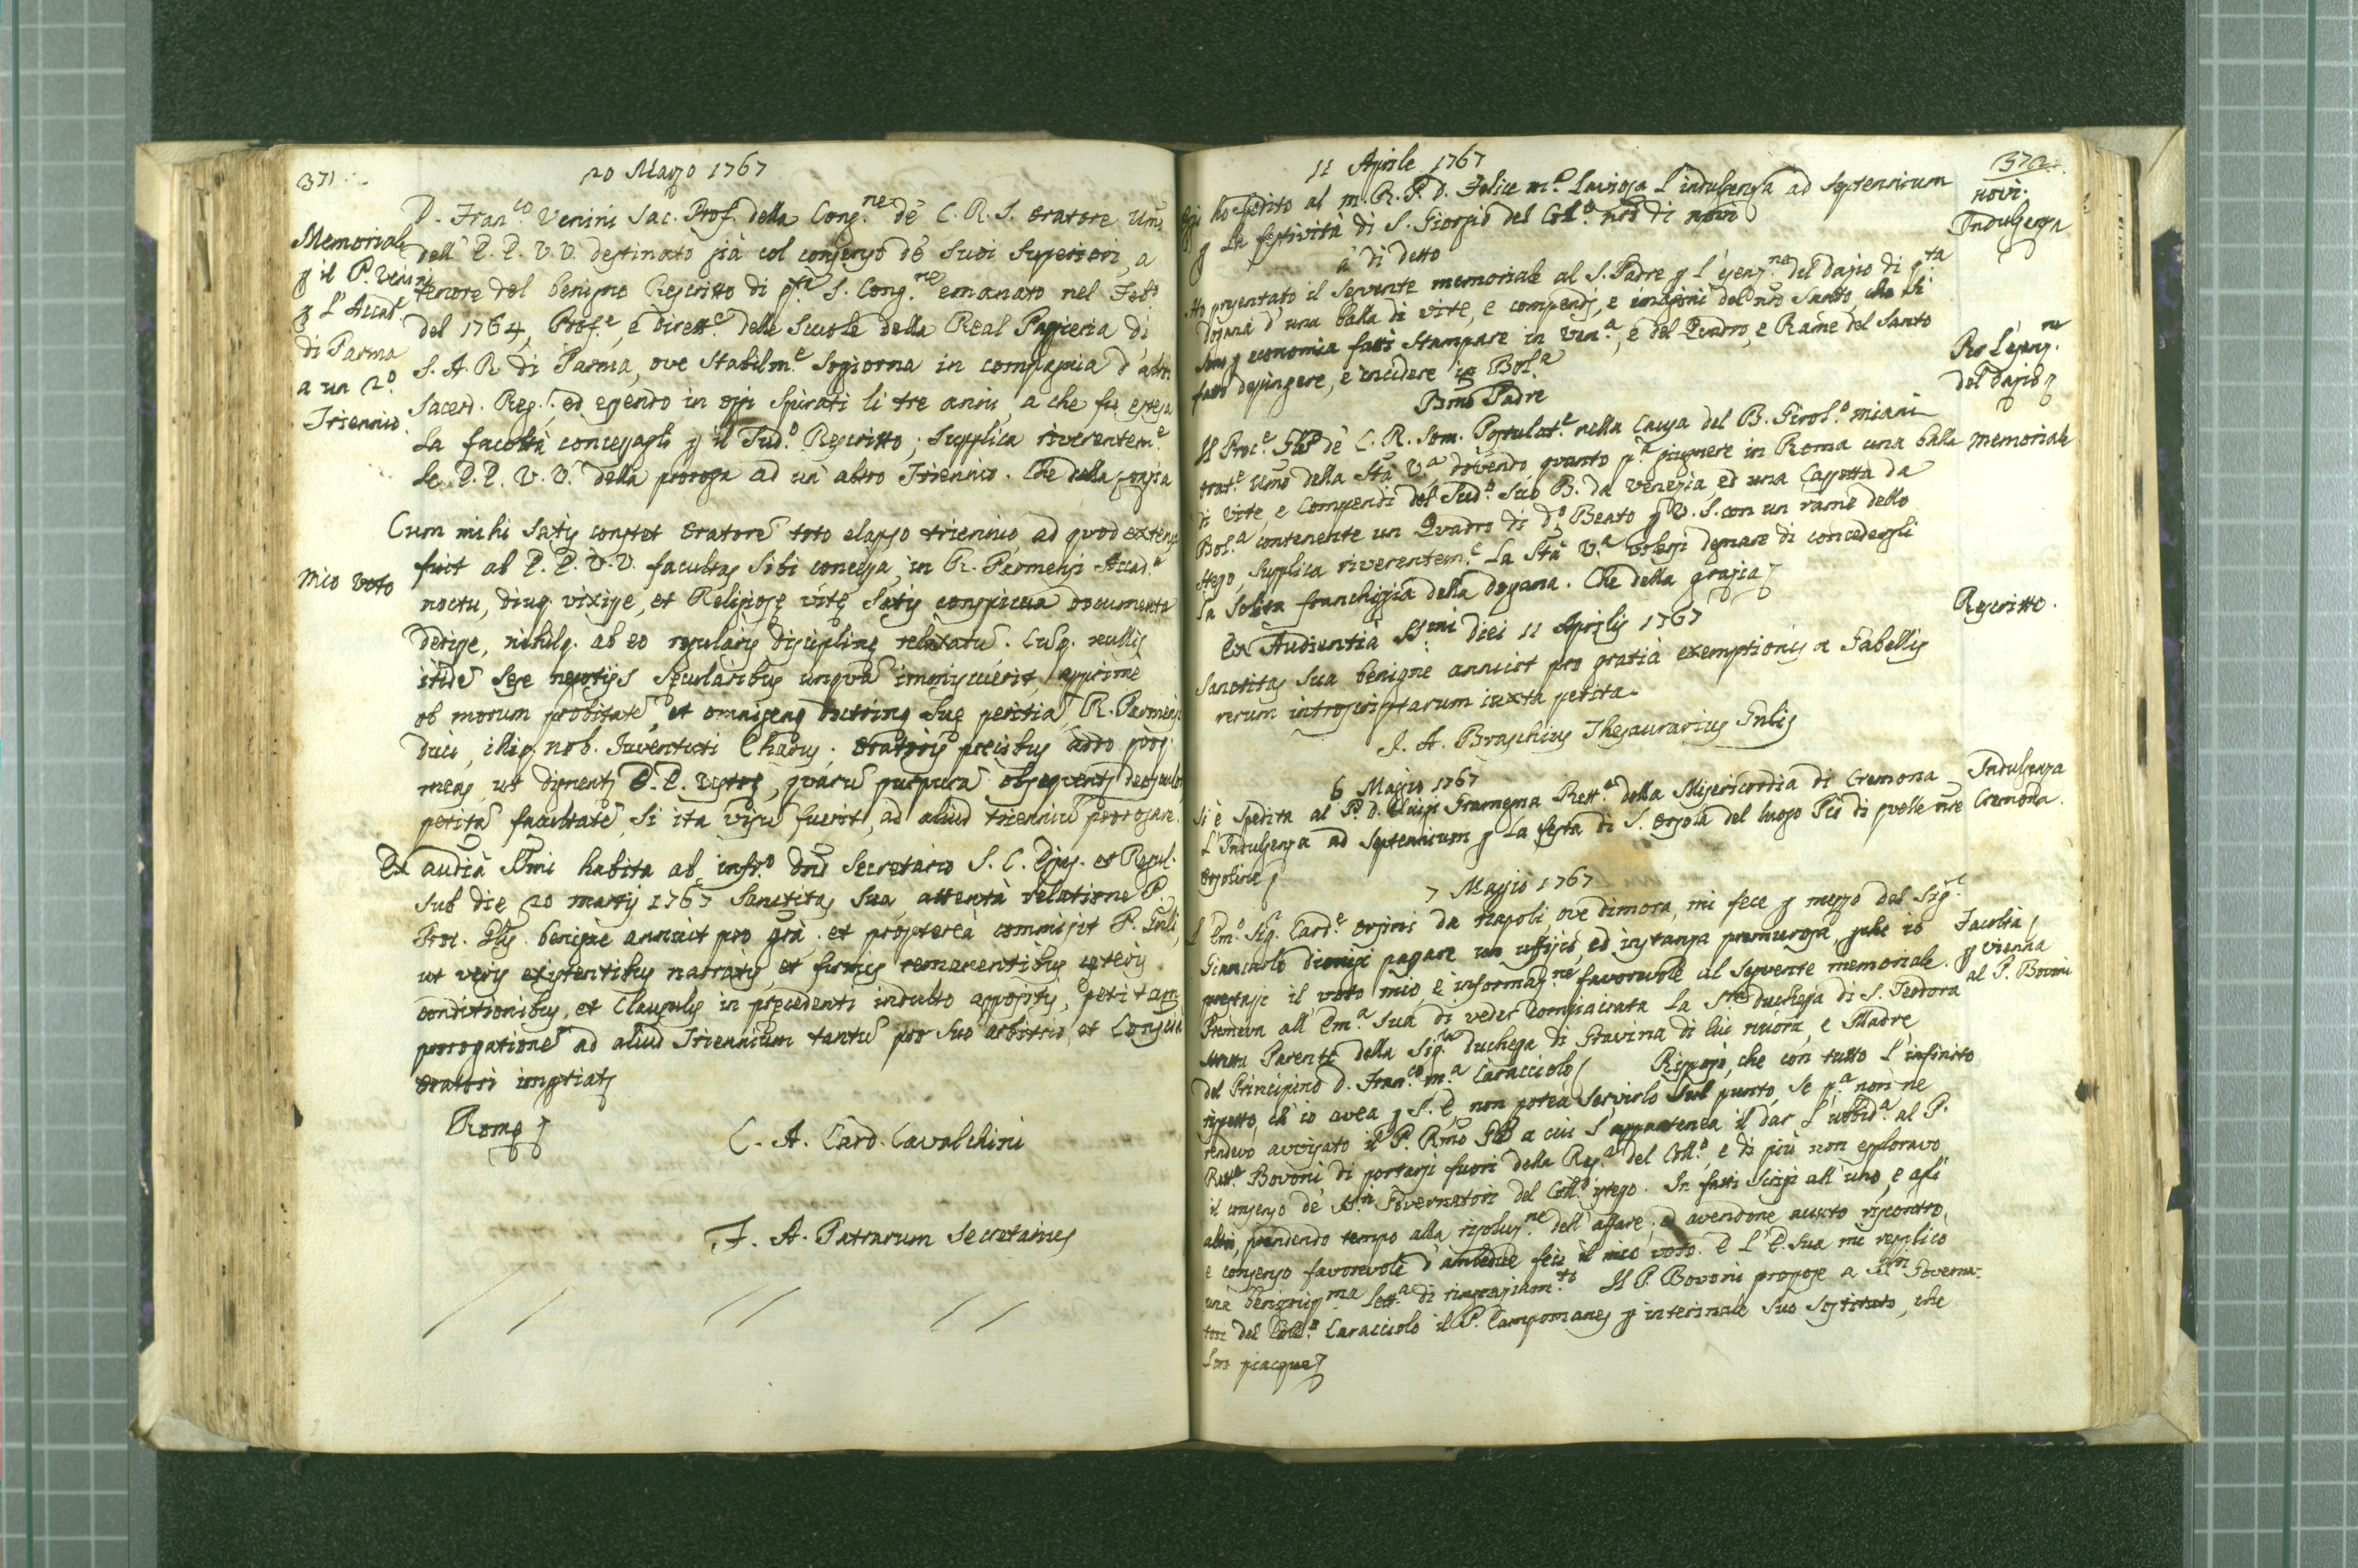 371
20 Marzo 1767
Memoriale
ꝑ il P. Venini
ꝑ l'Accad.ᵃ
di Parma
a un 2.º
Triennio
D. Fran.ᶜᵒ Venini Sac. Prof. della Cong.ⁿᵉ de' C. R. S. Oratore Um̃o
dell' E. E. V. V. destinato già col consenso de' suoi Superiori, a
tenore del benigno Rescritto di q.ᵗᵃ S. Cong.ⁿᵉ emanato nel Feb.º
del 1764, Prof.ᵉ, e Dirett.ᵉ delle Scuole della Real Paggieria di
S. A. R. di Parma, ove stabilm.ᵉ sogiorna in compagnia d'altri
Sacerd. Reg.ⁱ, ed essendo in oggi spirati li tre anni, a che fu estesa
la facoltà concessagli ꝑ il Sud.º Rescritto; supplica riverentem.ᵉ
le E. E. V. V. della proroga ad un altro Triennio. Che della grazia
Mio Voto
Cum mihi satis constet Oratorẽ toto elapso triennio, ad quod extensa
fuit ab E. E. V. V. facultas sibi concessa, in R. Parmensi Accad.ᵃ
noctu, diuq. vixisse, et Religiosę vitę satis conspicua documenta
dedisse, nihilq. ab eo regularis disciplinę relaxatũ. Cuq. nullis
itidẽ sese negotijs sęcularibus unquã immiscuerit, apprime
ob morum probitatẽ, et omnigenę doctrinę suę peritiã, R. Parmensi
Duci, illiq. nob. Juventuti Charus; Oratoris precibus addo preces
meas, ut dignents E. E. Vestrę, quarũ purpurã obsequents deosculor,
petitã facultatẽ, si ita visũ fuerit, ad aliud trienniũ prorogare.
Ex audiã SSmi habita ab infr.º Dño Secretario S. C. Epis. et Regul.
sub die 20 martij 1767 Sanctitas Sua, attentà relatione P.
Proc. Glis benigne annuit pro grã. et proptereà commisit P. Gñli,
ut veris existentibus narratis, et firmis remanentibus cęteris
conditionibus, et clausulis in pręcedenti indulto appositis, petitam
prorogationẽ ad aliud Triennium tantũ pro suo arbitrio, et Conscia
Oratori impertiats
Romę
C. A. Card. Cavalchini
F. A. Patrarum Secretarius
372
11 Aprile 1767
Oggi ho spedito al M. R. P. D. Felice M.ª Lavizza l'indulgenza ad Septennium
ꝑ la festività di S. Giorgio del Coll.º ñro di Novi
Novi.
Indulgenza
a' di detto
Ho presentato il seguente memoriale al S. Padre ꝑ l'esenz.ⁿᵉ del dazio di q.ᵗᵃ
Dogana d'una balla di vite, e compendj, e imagini del ñro Santo, che si
sono ꝑ economia fatti stampare in Ven.ª, e del Quadro, e Rame del Santo
fatto depingere, e incidere in Bol.ª
Per l'esenz.ⁿᵉ
del dazio ꝑ
Bmo Padre
Il Proc.ᵉ Glẽ de' C. R. Som. Postulat.ᵉ nella Causa del B. Girol.º Miani
Orat.ᵉ Umo della Stà V.ª, dovendo quanto p.ª giugnere in Roma una balla
di vite, e Compendi del Sud.º suo B. da Venezia ed una Cassetta da
Bol.ª contenente un Quadro di d.º Beato ꝑ V. S. con un rame dello
stesso, supplica riverentem.ᵉ la Stà V.ª volersi degnare di concedergli
la solita franchigia della dogana. Che della grazia
Memoriale
Ex Audientià SSmi diei 11 Aprilis 1767
Sanctitas Sua benigne annuit pro gratià exemptionis a Gabellis
rerum introscriptarum iuxta petita.
J. A. Braschius Thesaurarius Gñlis
Rescritto.
6 Maggio 1767
Si è spedita al P. D. Luigi Tramezza Rett.ᵉ della Misericordia di Cremona
l'Indulgenza ad Septennium ꝑ la festa di S. Orsola del luogo Pio di quelle ñre
Orsoline
Indulgenza
Cremona.
7 Maggio 1767
L'Em.º Sig. Card.ᵉ Orsini da Napoli, ove dimora, mi fece ꝑ mezzo del Sig.ʳ
Giannicola Dionisi pagare un uffizio, ed instanza premurosa, ꝑche io
prestassi il voto mio, e informaz.ⁿᵉ favorevole al seguente memoriale.
Premeva all' Em.ª Sua di veder compiaciuta la S.ʳᵃ Duchessa di S. Teodora
stretta Parente della Sig.ʳᵃ Duchessa di Gravina di lui nuora, e Madre
del Principino D. Fran.ᶜᵒ M.ª Caracciolo. Risposi, che con tutto l'infinito
rispetto, ch'io avea ꝑ S. E. non potea servirlo sul punto, se p.ª non ne
rendevo avvisato il P. Rmo Glẽ a cui s'appartenea il dar l'ubbid.ª al P.
Rett.ᵉ Bovoni di portarsi fuori della Reg.ª del Coll.º, e di più non esploravo
il consenso de' SS.ʳⁱ Governatori del Coll.º istesso. In fatti scrissi all'uno, e agli
altri, prendendo tempo alla risoluz.ⁿᵉ dell'affare; ed avendone avuto riscontro,
e consenso favorevole d'ambedue feci il mio voto. E l'E. Sua mi replicò
una benignis.ᵐᵃ lett.ª di ringraziam.ᵗᵒ Il P. Bovoni propose a SS.ʳⁱ Governa-
tori del Coll.º Caracciolo il P. Campomanes ꝑ interinale suo sostituto, che
lor piacque
Facoltà
ꝑ Vienna
al P. Bovoni